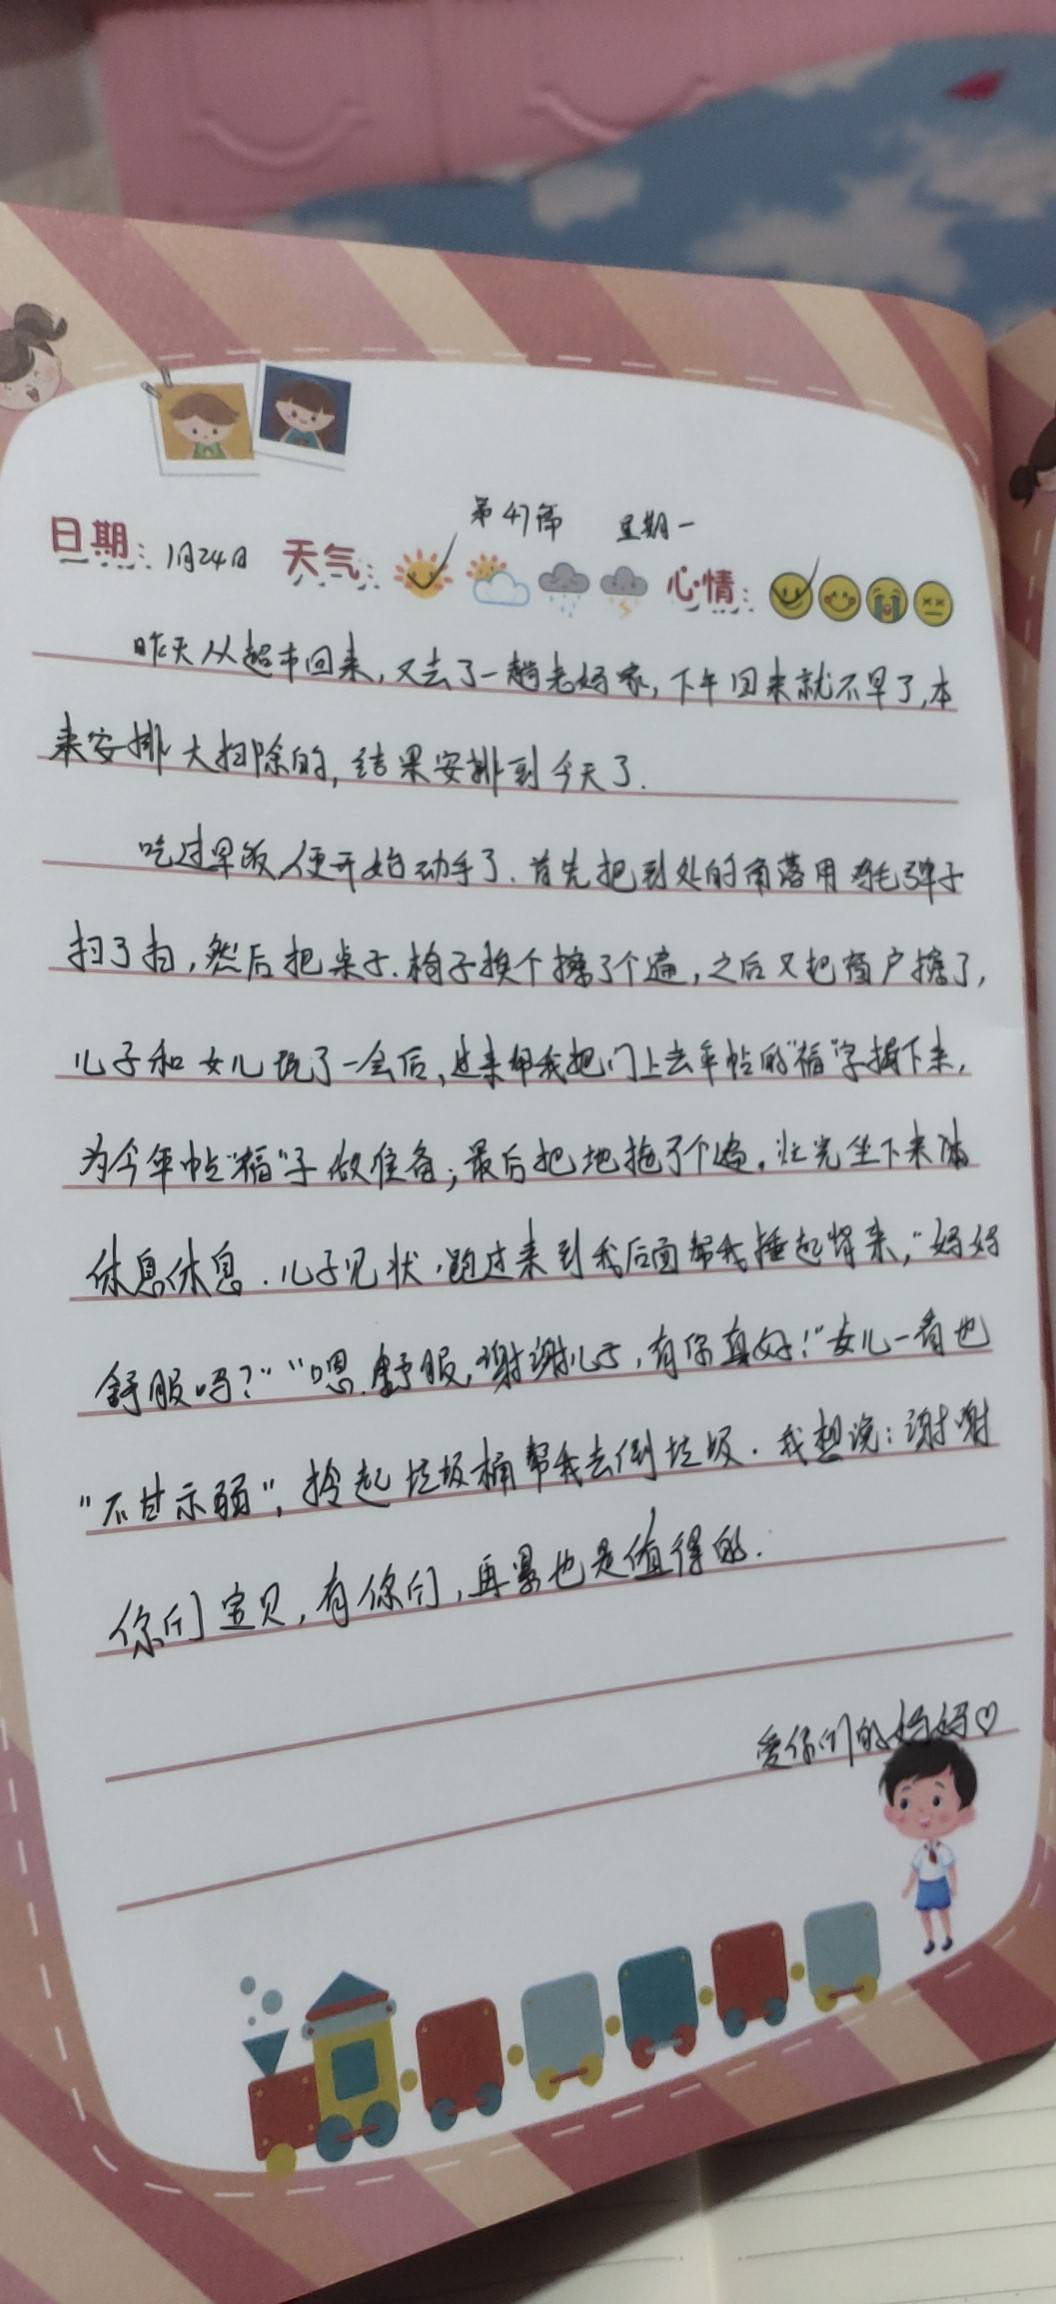 第47篇 星期一
日期: 1月24日 天气: 心情:
昨天从超市回来,又去了一趟老妈家,下午回来就不早了,本
来安排大扫除的,结果安排到今天了.
吃过早饭,便开始动手了.首先把到处的角落用鸡毛弹子
扫了扫,然后把桌子.椅子挨个擦了个遍,之后又把窗户擦了,
儿子和女儿玩了一会后,过来帮我把门上去年帖的“福”字撕下来,
为今年帖“福”子做准备;最后把地拖了个遍.忙完坐下来
休息休息.儿子见状,跑过来到我后面帮我捶起背来,“妈妈
舒服吗?”“嗯.舒服,谢谢儿子,有你真好!”女儿一看也
“不甘示弱”,拎起垃圾桶帮我去倒垃圾.我想说:谢谢
你们宝贝,有你们,再累也是值得的.
爱你们的妈妈♡